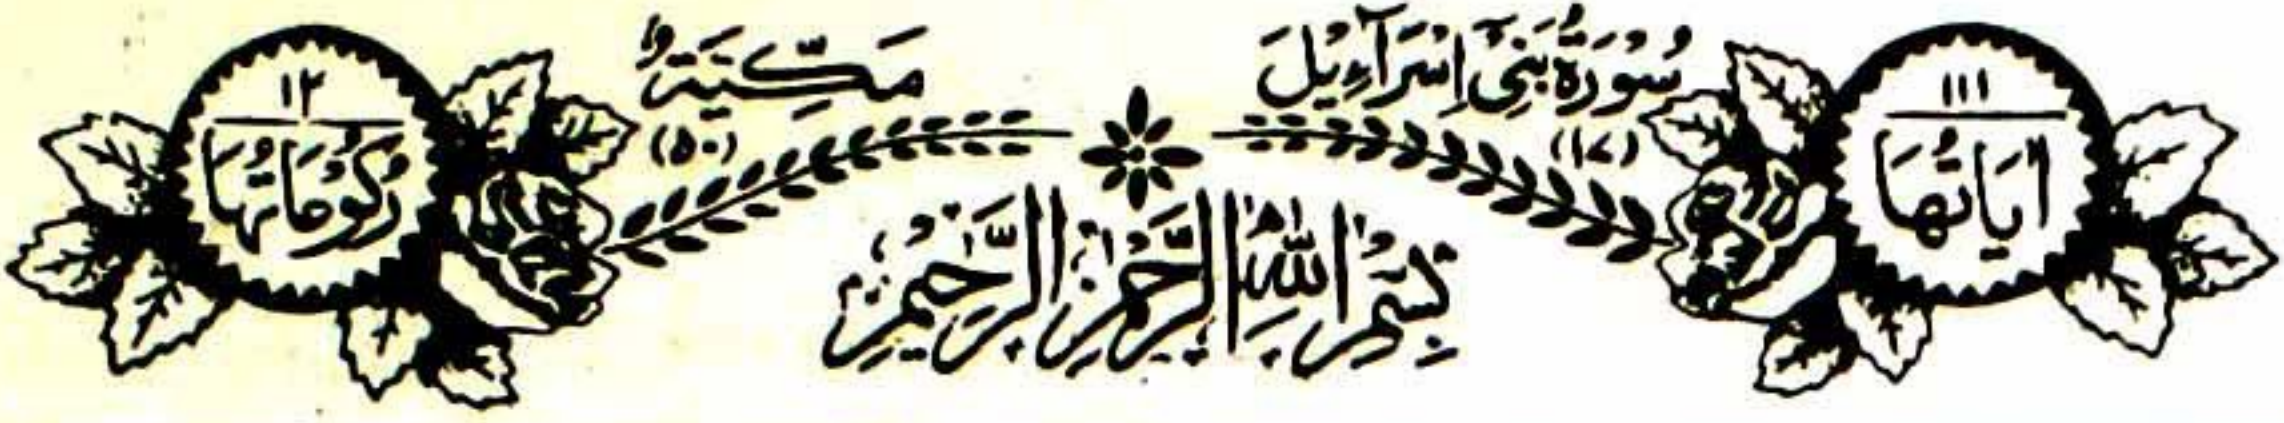 ١١١
اٰيَاتُهَا
سُوْرَةُ بَنِىْٓ اِسْرَآءِيْلَ
(١٧)
مَكِّيَّةٌ
(٥٠)
١٢
رُكُوْعَاتُهَا
بِسْمِ اللّٰهِ الرَّحْمٰنِ الرَّحِيْمِ